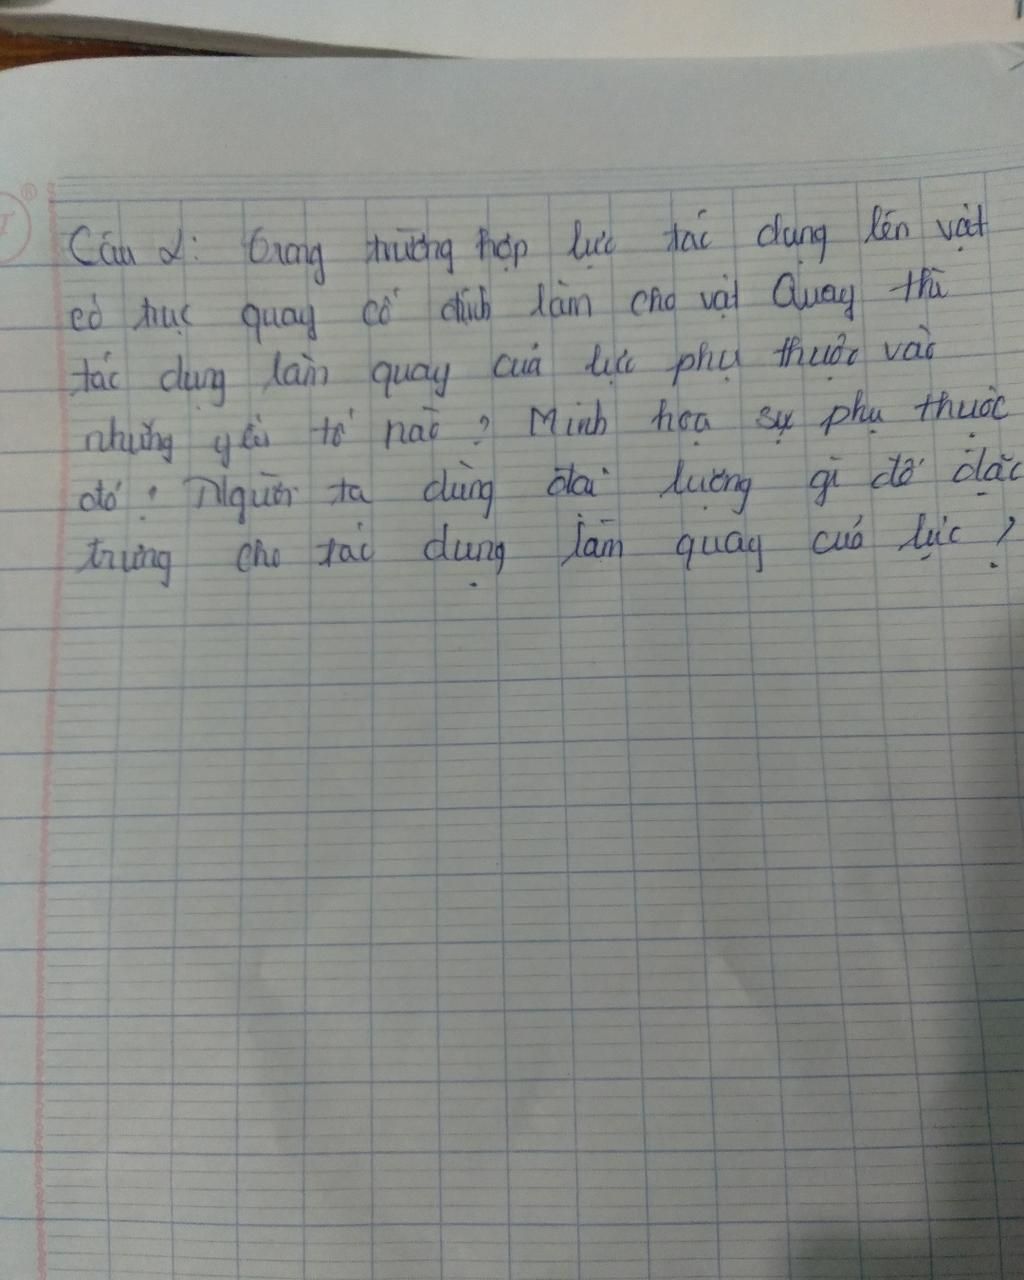 Câu 2: Trong trường hợp lực tác dụng lên vật
có trục quay cố định làm cho vật Quay thì
tác dụng làm quay của lực phụ thuộc vào
những yếu tố nào? Minh họa sự phụ thuộc
đó? Người ta dùng đại lượng gì để đặc
trưng cho tác dụng làm quay của lực?